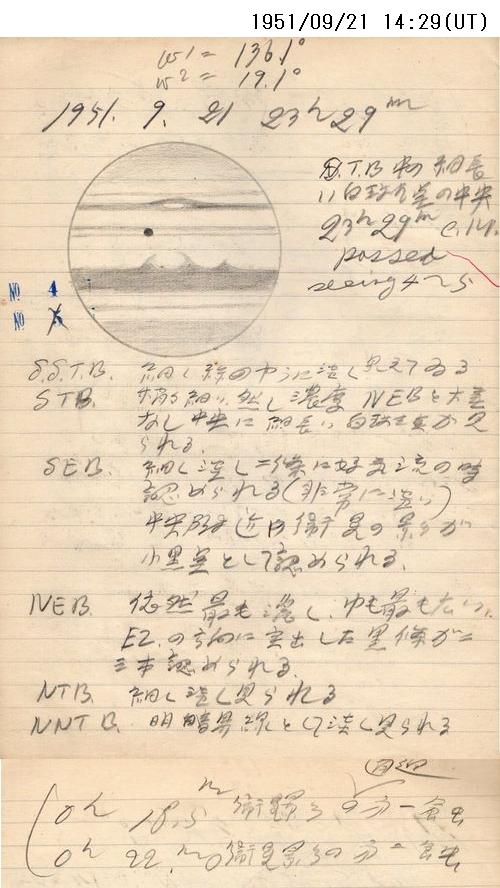 1951/09/21 14:29(UT)
ω1 = 136.1°
ω2 = 19.1°
1951. 9. 21 23h29m
S.T.B 中の細長
い白斑の中央
23h29m C.M.
passed
seeing 4~5
No 4
No
S.S.T.B. 細い線のやうに淡く見えてゐる
STB. 稍細い、然し濃度 NEBと大差
なし 中央に細長い白斑が見
られる.
SEB. 細く淡し二條に好気流の時
認められる(非常に淡い)
中央附近に衛星の影が
小黒点として認められる.
NEB. 依然最も濃く、巾も最も広い、
EZ.の方向に突出した黒條が二
三本認められる.
NTB. 細く淡く見られる
NNTB. 明暗界線として淡く見られる
0h 18.5m 衛星影の
0h 22.m0 衛星影の